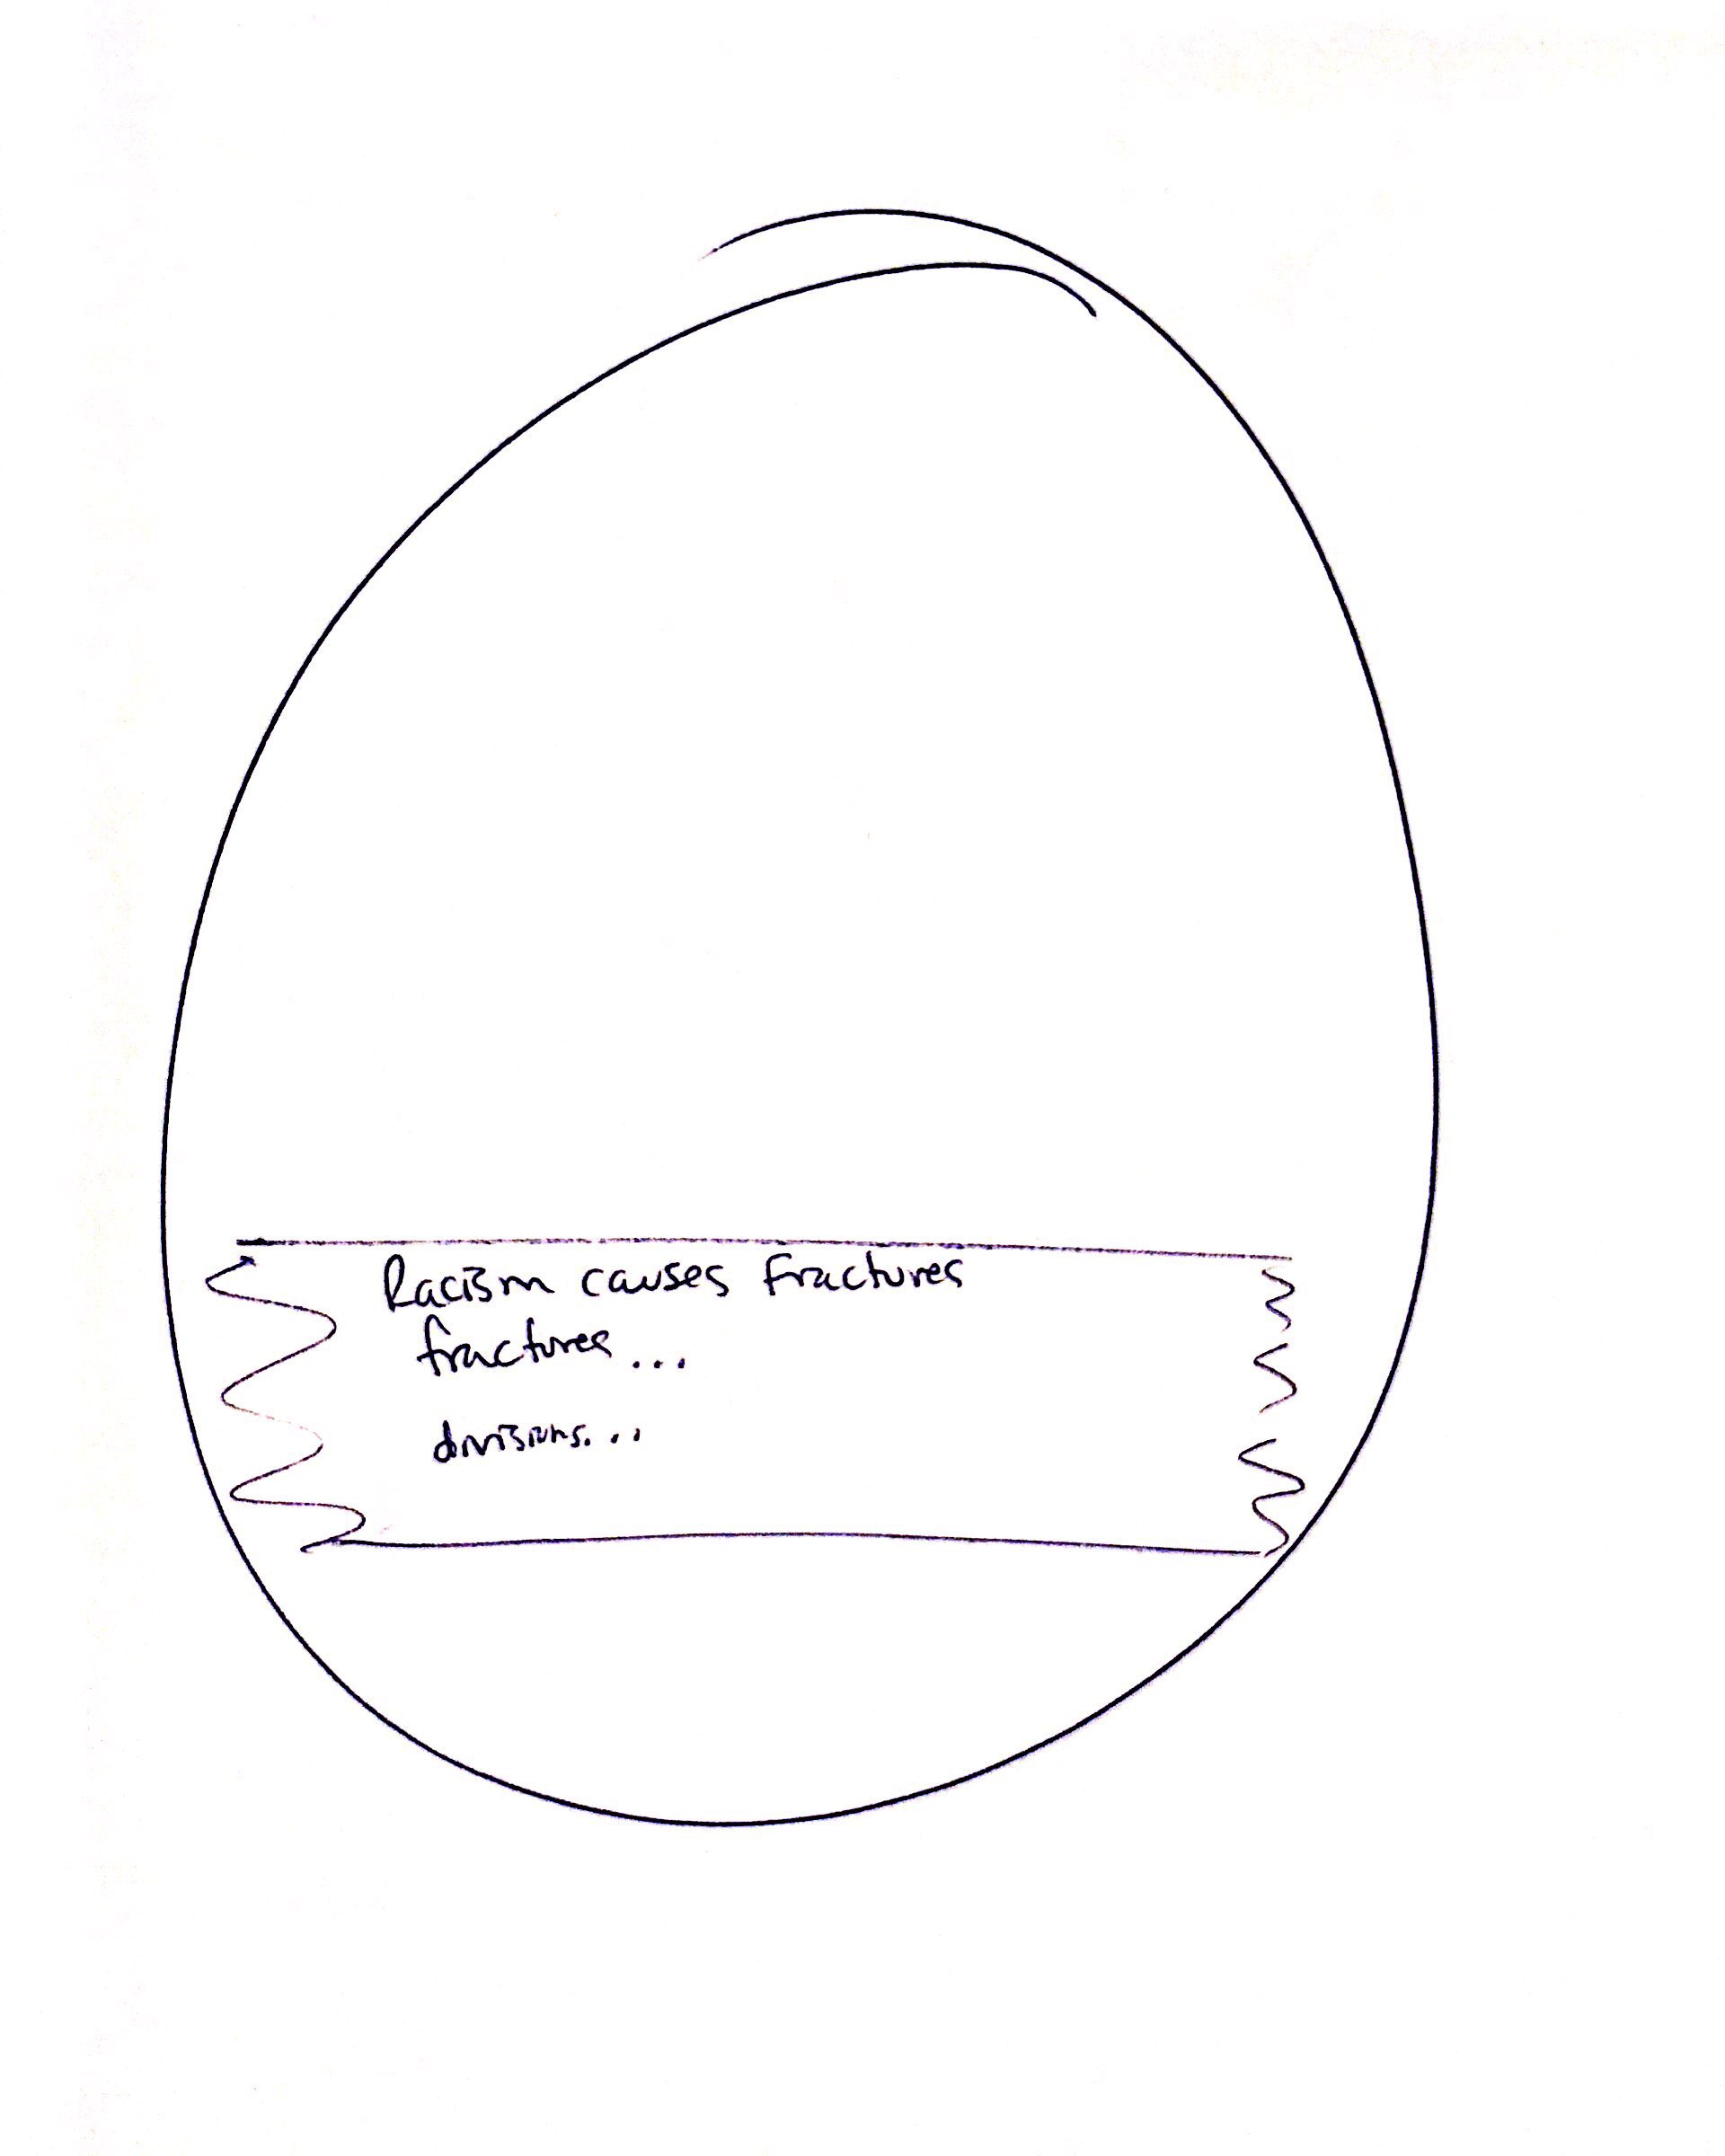 Racism causes fractures
fractures...
divisions...